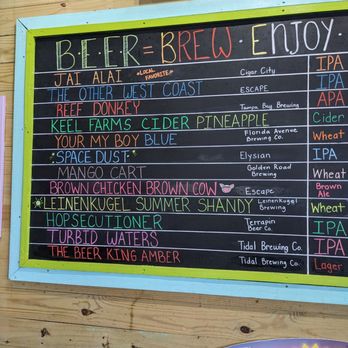 B·E·E·R = BREW · ENJOY ·
JAI ALAI *LOCAL FAVORITE* Cigar City IPA
THE OTHER WEST COAST ESCAPE IPA
REEF DONKEY Tampa Bay Brewing APA
KEEL FARMS CIDER PINEAPPLE Cider
YOUR MY BOY BLUE Florida Avenue Brewing Co. Wheat
SPACE DUST Elysian IPA
MANGO CART Golden Road Brewing Wheat
BROWN CHICKEN BROWN COW Escape Brown Ale
LEINENKUGEL SUMMER SHANDY Leinenkugel Brewing Wheat
HOPSECUTIONER Terrapin Beer Co. IPA
TURBID WATERS Tidal Brewing Co. IPA
THE BEER KING AMBER Tidal Brewing Co. Lager